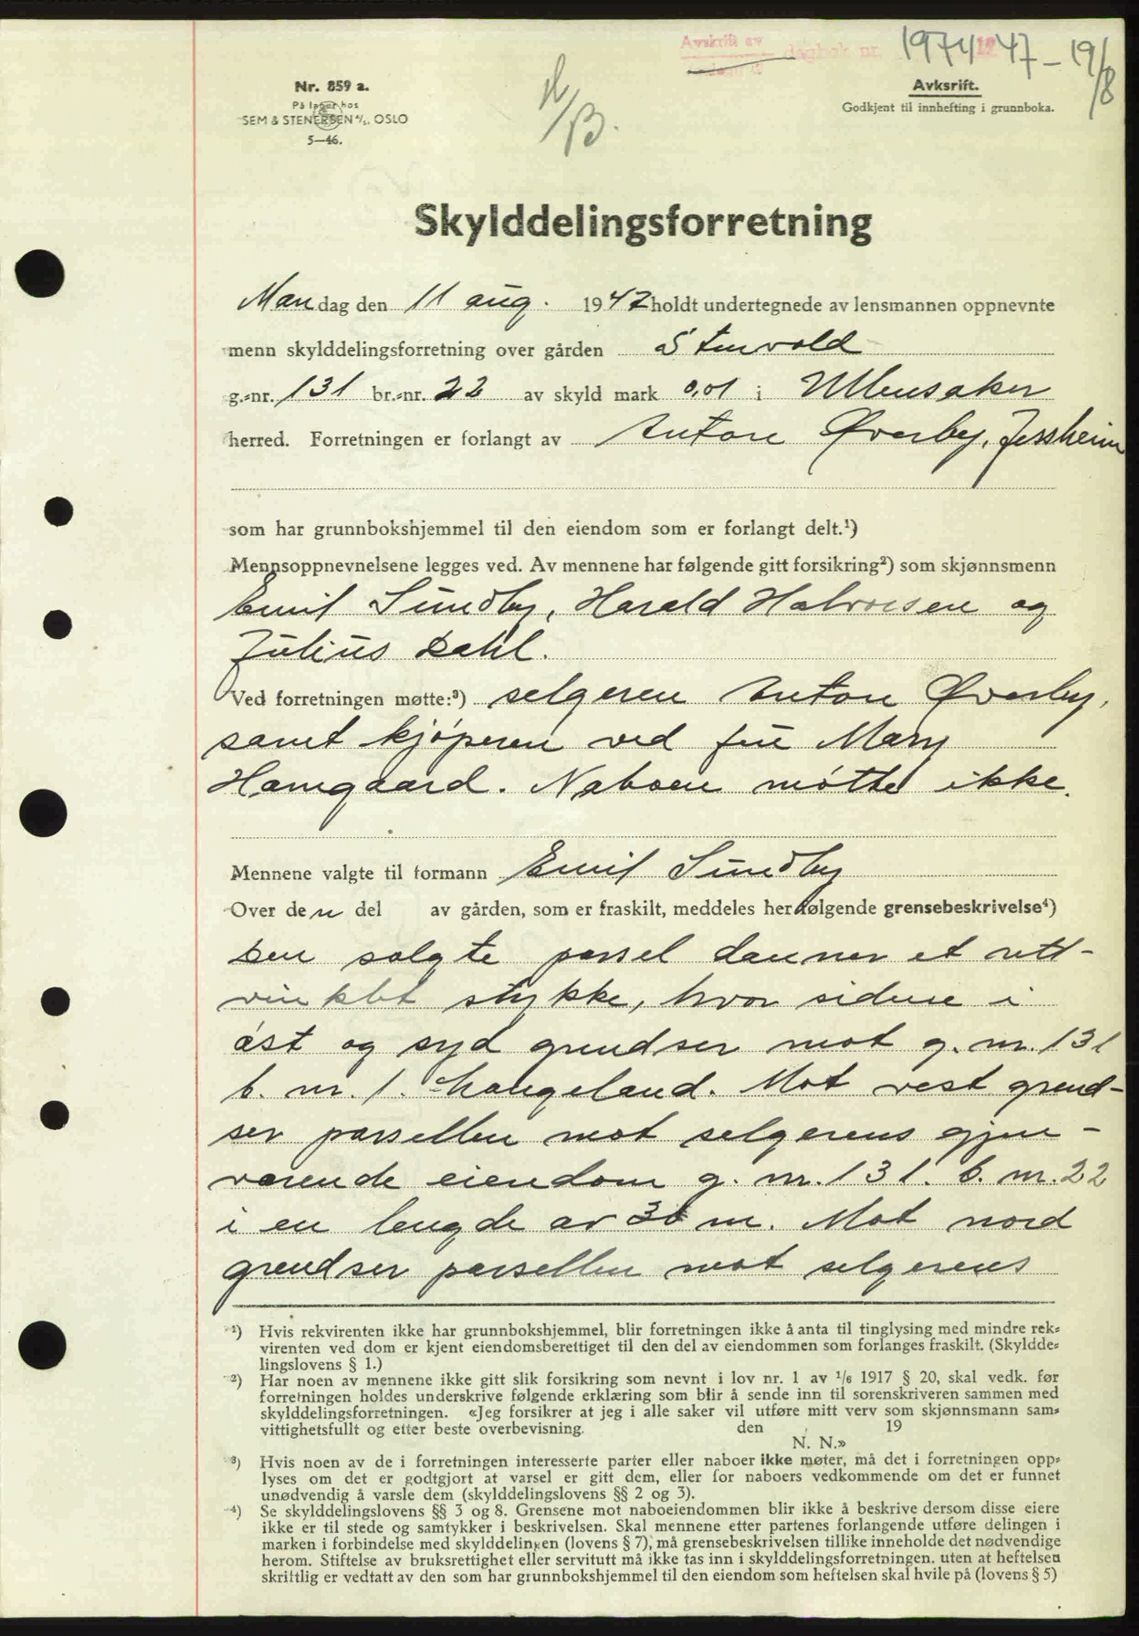 Avskrift av dagbok nr. 1974 1947 - 19/8
Nr. 859 a.
På lager hos
SEM & STENERSEN A/S. OSLO
5-46.
Avksrift.
Godkjent til innhefting i grunnboka.
Skylddelingsforretning
Mandag den 11 aug. 1947 holdt undertegnede av lensmannen oppnevnte
menn skylddelingsforretning over gården Stenvold
g.-nr. 131 br.-nr. 22 av skyld mark 0,01 i Ullensaker
herred. Forretningen er forlangt av Anton Øverby, Jessheim
som har grunnbokshjemmel til den eiendom som er forlangt delt.¹)
Mennsoppnevnelsene legges ved. Av mennene har følgende gitt forsikring²) som skjønnsmenn
Emil Sundby, Harald Halvorsen og
Julius Dahl.
Ved forretningen møtte:³) selgeren Anton Øverby,
samt kjøperen ved fru Mary
Hamgaard. Naboen møtte ikke.
Mennene valgte til formann Emil Sundby
Over den del av gården, som er fraskilt, meddeles her følgende grensebeskrivelse⁴)
Den solgte parsel danner et rett-
vinklet stykke, hvor sidene i
øst og syd grendser mot g. nr. 131
b. nr. 1. Hougeland. Mot vest grend-
ser parsellen mot selgerens gjen-
værende eiendom g. nr. 131. b. nr. 22
i en lengde av 30 m. Mot nord
grendser parsellen mot selgerens
¹) Hvis rekvirenten ikke har grunnbokshjemmel, blir forretningen ikke å anta til tinglysing med mindre rek-
virenten ved dom er kjent eiendomsberettiget til den del av eiendommen som forlanges fraskilt. (Skyldde-
lingslovens § 1.)
²) Har noen av mennene ikke gitt slik forsikring som nevnt i lov nr. 1 av 1/6 1917 § 20, skal vedk. før
forretningen holdes underskrive følgende erklæring som blir å sende inn til sorenskriveren sammen med
skylddelingsforretningen. «Jeg forsikrer at jeg i alle saker vil utføre mitt verv som skjønnsmann sam-
vittighetsfullt og etter beste overbevisning. den 19
N. N.»
³) Hvis noen av de i forretningen interesserte parter eller naboer ikke møter, må det i forretningen opp-
lyses om det er godtgjort at varsel er gitt dem, eller for naboers vedkommende om det er funnet
unødvendig å varsle dem (skylddelingslovens §§ 2 og 3).
⁴) Se skylddelingslovens §§ 3 og 8. Grensene mot naboeiendommen blir ikke å beskrive dersom disse eiere
ikke er til stede og samtykker i beskrivelsen. Skal mennene etter partenes forlangende utføre delingen i
marken i forbindelse med skylddelingen (lovens § 7), må grensebeskrivelsen tillike inneholde det nødvendige
herom. Stiftelse av bruksrettighet eller servitutt må ikke tas inn i skylddelingsforretningen, uten at heftelsen
skriftlig er vedtatt av den som har grunnbokshjemmel til den eiendom som heftelsen skal hvile på (lovens § 5)